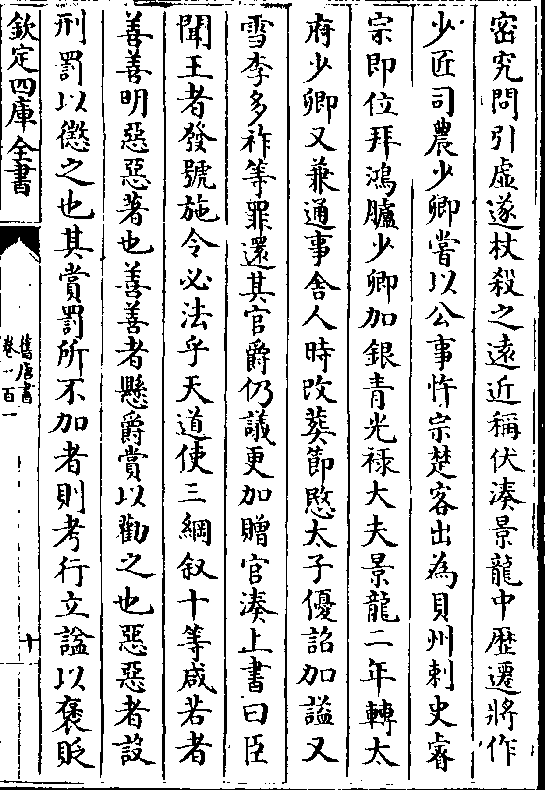 密究問引虛遂杖殺之遠近稱伏湊景龍中歴遷將作
少匠司農少卿嘗以公事忤宗楚客出為貝州刺史睿
宗即位拜鴻臚少卿加銀青光禄大夫景龍二年轉太
府少卿又兼通事舍人時改葬節愍太子優詔加諡又
雪李多祚等罪還其官爵仍議更加贈官湊上書曰臣
聞王者發號施令必法乎天道使三綱叙十等咸若者
善善明惡惡著也善善者懸爵賞以勸之也惡惡者設
刑罰以懲之也其賞罰所不加者則考行立諡以褒貶
欽定四庫全書
舊唐書
卷一百一
十